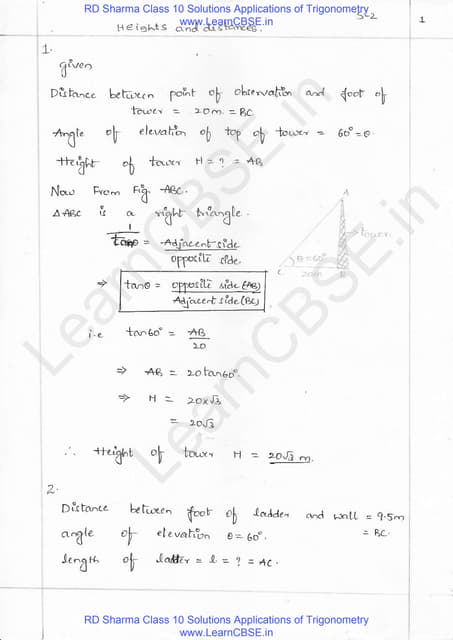 RD Sharma Class 10 Solutions Applications of Trigonometry
www.LearnCBSE.in
Heights and distances.
1
1.
given
Distance between point of observation and foot of
tower = 20m = BC
Angle of elevation of top of tower = 60° = θ
Height of tower H = ? = AB
Now From Fig. ABC.
Δ ABC is a right triangle.
1/tanθ = Adjacent side / opposite side.
⇒ tanθ = opposite side (AB) / Adjacent side (BC)
A
tower
θ = 60°
C 20m B
i.e tan60° = AB / 20
⇒ AB = 20tan60°.
⇒ H = 20×√3
= 20√3
∴ Height of tower H = 20√3 m.
2.
Distance between foot of ladder and wall = 9.5m
= BC.
angle of elevation θ = 60°.
length of ladder = l = ? = AC.
LearnCBSE.in
LearnCBSE.in
RD Sharma Class 10 Solutions Applications of Trigonometry
www.LearnCBSE.in